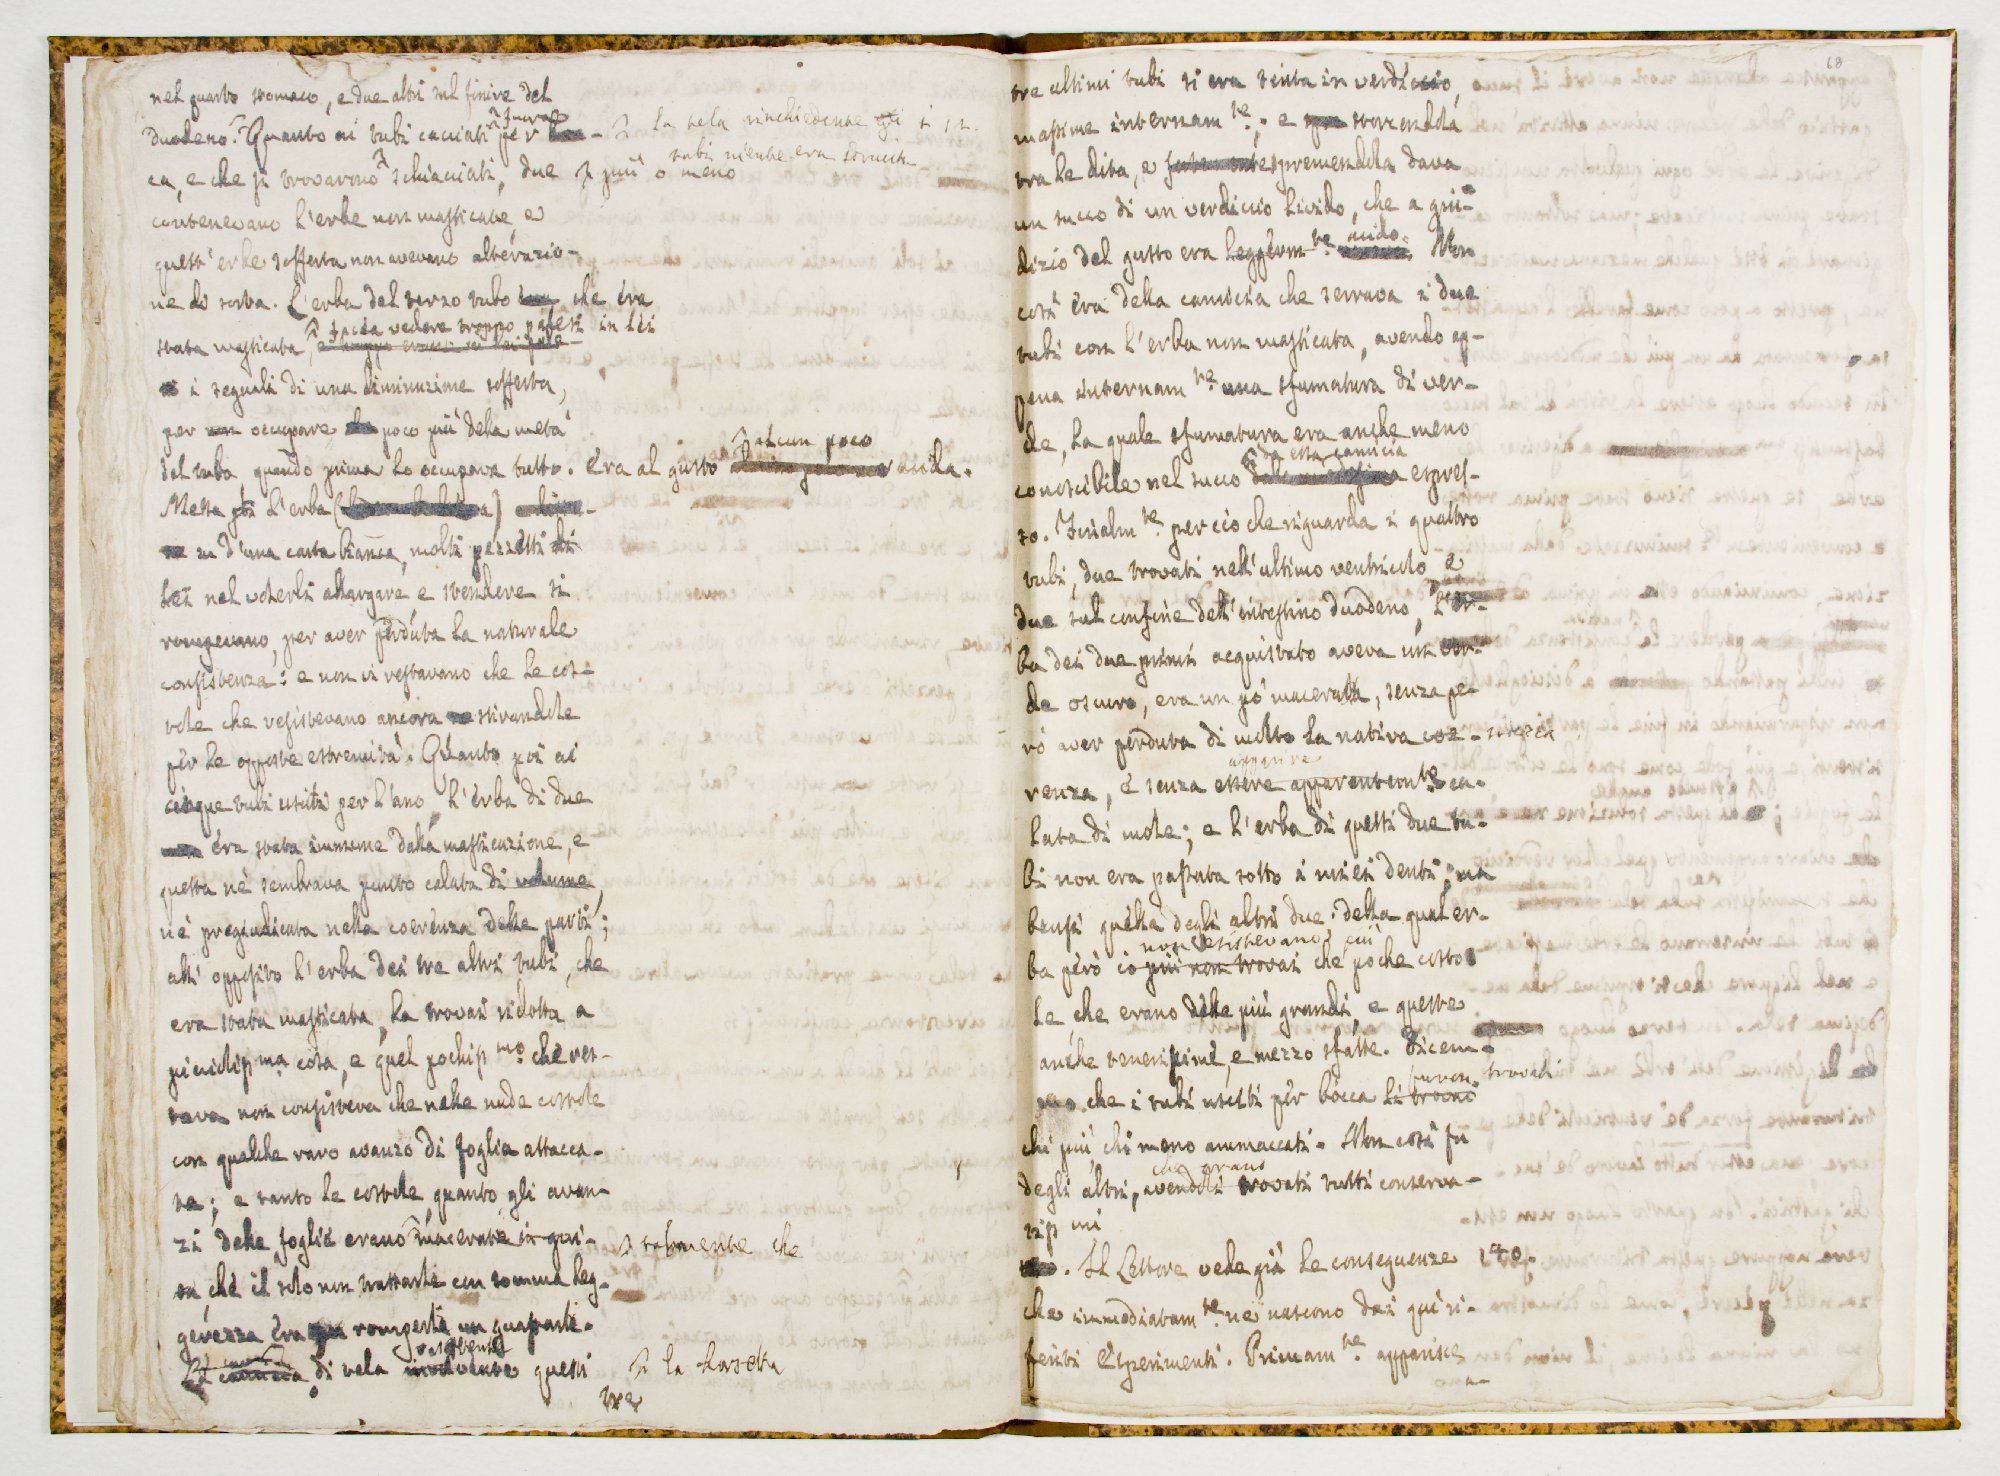 nel quarto stomaco, e due altri sul finire del
duodeno. Quanto ai tubi cacciati per
furon
la tela rinchiedente i 12.
tubi niente era sdrucita
ca, e che si trovarono schiacciati, due
più o meno
contenevano l'erbe non masticate, e
quest'erbe sofferta non avevano alterazio-
ne di sorta. L'erba del terzo tubo che era
stata masticata,
facea vedere troppo palesi in lei
i segnali di una diminuzione sofferta,
per occupare poco più della metà
del tubo, quando prima lo occupava tutto. Era al gusto acida.
alcun poco
Messa poi l'erba
su d'una carta bianca, molti pezzetti di
lei nel volerli allargare e stendere si
rompevano, per aver perduta la naturale
consistenza: e non ci restavano che le cos-
tole che resistevano ancora stirandole
per le opposte estremità. Quanto poi ai
cinque tubi usciti per l'ano, l'erba di due
era stata immune dalla masticazione, e
questa nè sembrava punto calata di volume,
nè pregiudicata nella coerenza delle parti;
all'opposito l'erba dei tre altri tubi, che
era stata masticata, la trovai ridotta a
picciolissma cosa, e quel pochissmo che res-
tava non consisteva che nelle nude costole
con qualche raro avanzo di foglia attacca-
te; e tanto le costole, quanto gli avan-
zi delle foglie erano macerate in gui-
talmente che
sa, che il solo non trattarle con somma leg-
gerezza era romperle un guastarle.
camicia di tela involvente questi
la borsetta
tre
68
tre ultimi tubi si era tinta in verdiccio,
massime internamte; e storcendola
tra le dita, e spremendola dava
un succo di un verdiccio livido, che a giu-
dizio del gusto era leggermte acido. Non
così era della camicia che serrava i due
tubi con l'erba non masticata, avendo ap-
pena internamte una sfumatura di ver-
de, la quale sfumatura era anche meno
da essa camicia
conoscibile nel succo espres-
so. Finalmte per ciò che riguarda i quattro
tubi, due trovati nell'ultimo ventricolo, e
due sul confine dell'intestino duodeno, l'er-
ba dei due primi acquistato aveva un ver-
de oscuro, era un pò macerata, senza pe-
rò aver perduta di molto la nativa coe-
apparire
renza, e senza essere apparentemte ca-
lata di mole; e l'erba di questi due tu-
bi non era passata sotto i miei denti; ma
bensì quella degli altri due, della qual er-
non esistevano più
ba però io più non trovai che poche costo
le, che erano delle più grandi e queste
anche tenerissime, e mezzo sfatte. Dicem-
mo che i tubi usciti per bocca li trovai
furon trovati
chi più, chi meno ammaccati. Non così fu
che erano
degli altri, avendoli trovati tutti conserva-
tissmi
140.
Il Lettore vede già le conseguenze
che immediatamte ne nascono dai qui ri-
feriti Esperimenti. Primamte apparisce